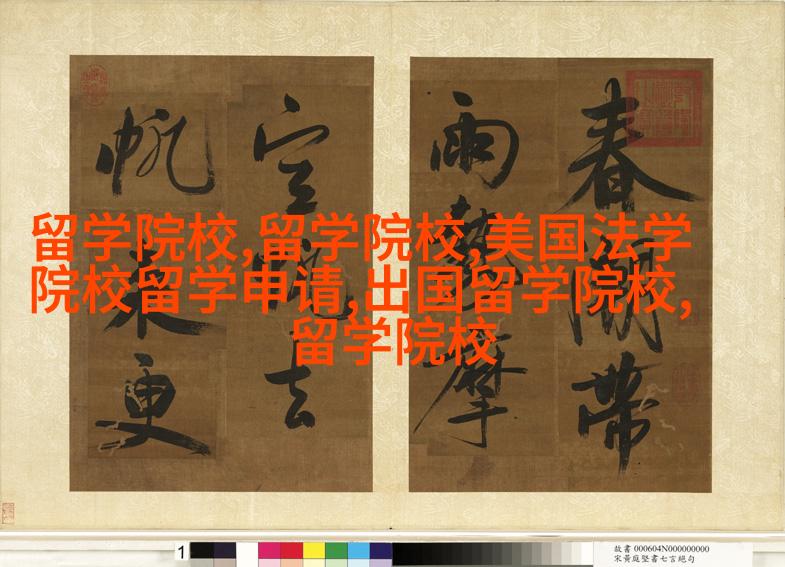 春 帶
雨 摩
去
帆 更
留学院校,留学院校,美国法学
院校留学申请,出国留学院校,
留学院校
1
故書 000604N000000000
宋黃庭堅書七言絕句